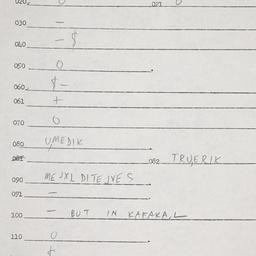 020. 0 021 0
030 –
040 – $
050 0
060 $ –
061 +
070 0
080 U,MEDIK
081 082 TRUERIK
090 ME JXL DITE JVES
091 –
100 – BUT IN KAFAKA,L
110 0